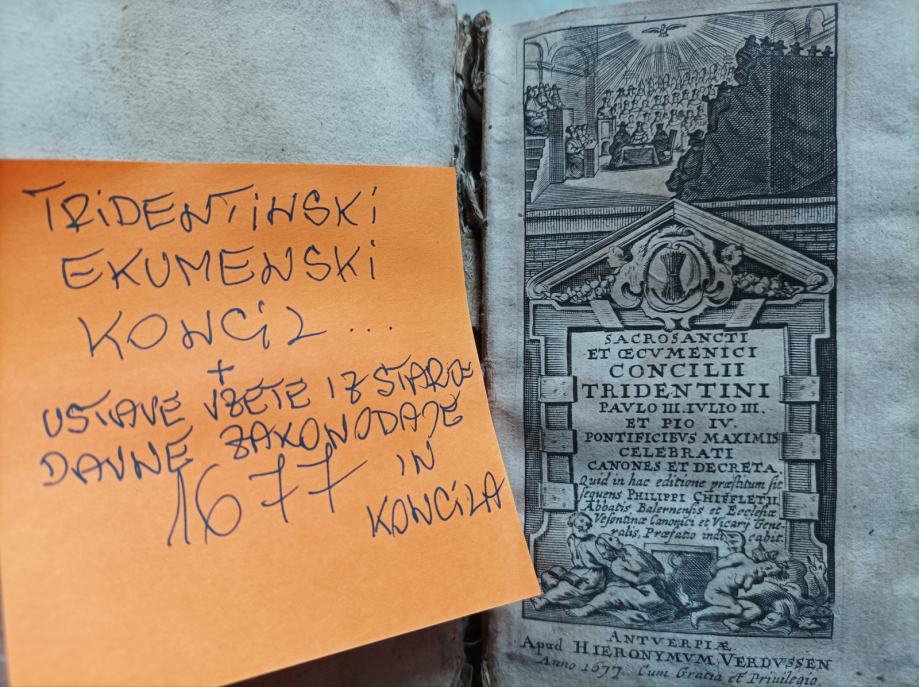 TRIDENTINSKI
EKUMENSKI
KONCIL...
+
USTAVE VZETE IZ STARO-
DAVNE ZAKONODAJE
1677 IN
KONCILA
SACROSANCTI
ET ŒCVMENICI
CONCILII
TRIDENTINI
PAVLO III. IVLIO III.
ET PIO IV.
PONTIFICIBVS MAXIMIS
CELEBRATI
CANONES ET DECRETA.
Quid in hac editione præstitum sit
sequens PHILIPPI CHIFFLETII
Abbatis, Balernensis et Ecclesiæ
Vesontinæ Canonici et Vicarij Gene-
ralis, Præfatio indicabit.
ANTVERPIÆ.
Apud HIERONYMVM VERDVSSEN
Anno 1677. Cum Gratia et Priuilegio.